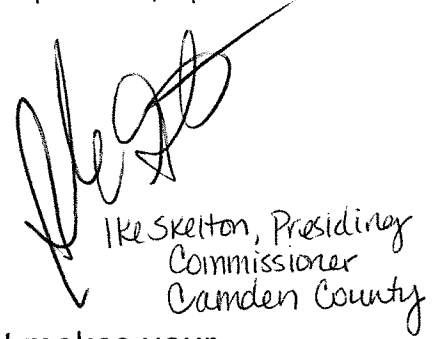 Ike Skelton, Presiding
Commissioner
Camden County
makes your